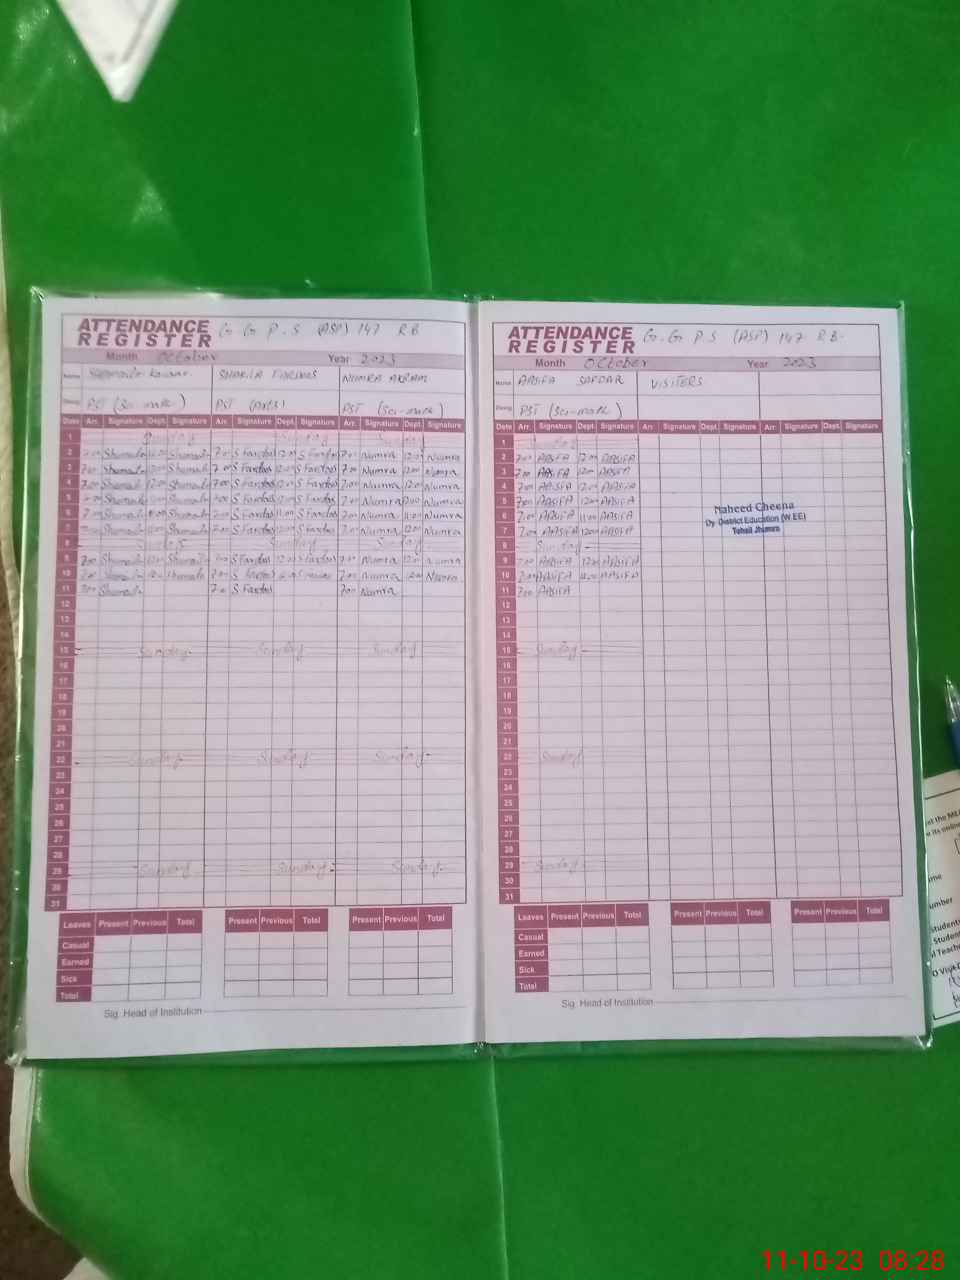 ATTENDANCE REGISTER G. G P. S (ASP) 147 R.B
Month October Year 2023
Name SHAKILA FIRDOUS NUMRA AKRAM
Desig PST (Sci-math) PST (Arts) PST (Sci-math)
Date Arr. Signature Dept. Signature Arr. Signature Dept. Signature Arr. Signature Dept. Signature
1 Sunday Sunday Sunday
2 7:00 Shumaila 12:00 Shumaila 7:00 S Fardos 12:00 S Fardos 7:00 Numra 12:00 Numra
3 7:00 Shumaila 12:00 Shumaila 7:00 S Fardos 12:00 S Fardos 7:00 Numra 12:00 Numra
4 7:00 Shumaila 12:00 Shumaila 7:00 S Fardos 12:00 S Fardos 7:00 Numra 12:00 Numra
5 7:00 Shumaila 12:00 Shumaila 7:00 S Fardos 12:00 S Fardos 7:00 Numra 12:00 Numra
6 7:00 Shumaila 11:00 Shumaila 7:00 S Fardos 11:00 S Fardos 7:00 Numra 11:00 Numra
7 7:00 Shumaila 12:00 Shumaila 7:00 S Fardos 12:00 S Fardos 7:00 Numra 12:00 Numra
8 Sunday Sunday Sunday
9 7:00 Shumaila 12:00 Shumaila 7:00 S Fardos 12:00 S Fardos 7:00 Numra 12:00 Numra
10 7:00 Shumaila 12:00 Shumaila 7:00 S Fardos 12:00 7:00 Numra 12:00 Numra
11 7:00 Shumaila 7:00 S Fardos 7:00 Numra
12
13
14
15 Sunday Sunday Sunday
16
17
18
19
20
21
22 Sunday Sunday Sunday
23
24
25
26
27
28
29 Sunday Sunday Sunday
30
31
Leaves Present Previous Total Present Previous Total Present Previous Total
Casual
Earned
Sick
Total
Sig. Head of Institution
ATTENDANCE REGISTER G. G P S (ASP) 147 R.B.
Month October Year 2023
Name AASIFA SAFDAR VISITERS
Desig PST (Sci-math)
Date Arr. Signature Dept. Signature Arr Signature Dept. Signature Arr. Signature Dept. Signature
1 Sunday
2 7:00 AASIFA 12:00 AASIFA
3 7:00 AASIFA 12:00 AASIFA
4 7:00 AASIFA 12:00 AASIFA
5 7:00 AASIFA 12:00 AASIFA
6 7:00 AASIFA 11:00 AASIFA
7 7:00 AASIFA 12:00 AASIFA
8 Sunday
9 7:00 AASIFA 12:00 AASIFA
10 7:00 AASIFA 12:00 AASIFA
11 7:00 AASIFA
12
13
14
15 Sunday
16
17
18
19
20
21
22 Sunday
23
24
25
26
27
28
29 Sunday
30
31
Naheed Cheena
Dy. District Education (W.EE)
Tehsil Jhumra
Leaves Present Previous Total Present Previous Total Present Previous Total
Casual
Earned
Sick
Total
Sig. Head of Institution
11-10-23 08:28